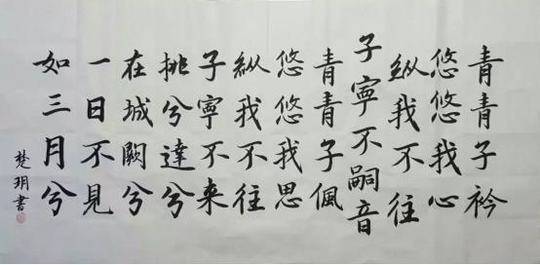 青青子衿
悠悠我心
纵我不往
子寧不嗣音
青青子佩
悠悠我思
縱我不往
子寧不来
挑兮達兮
在城闕兮
一日不見
如三月兮
楚玥書